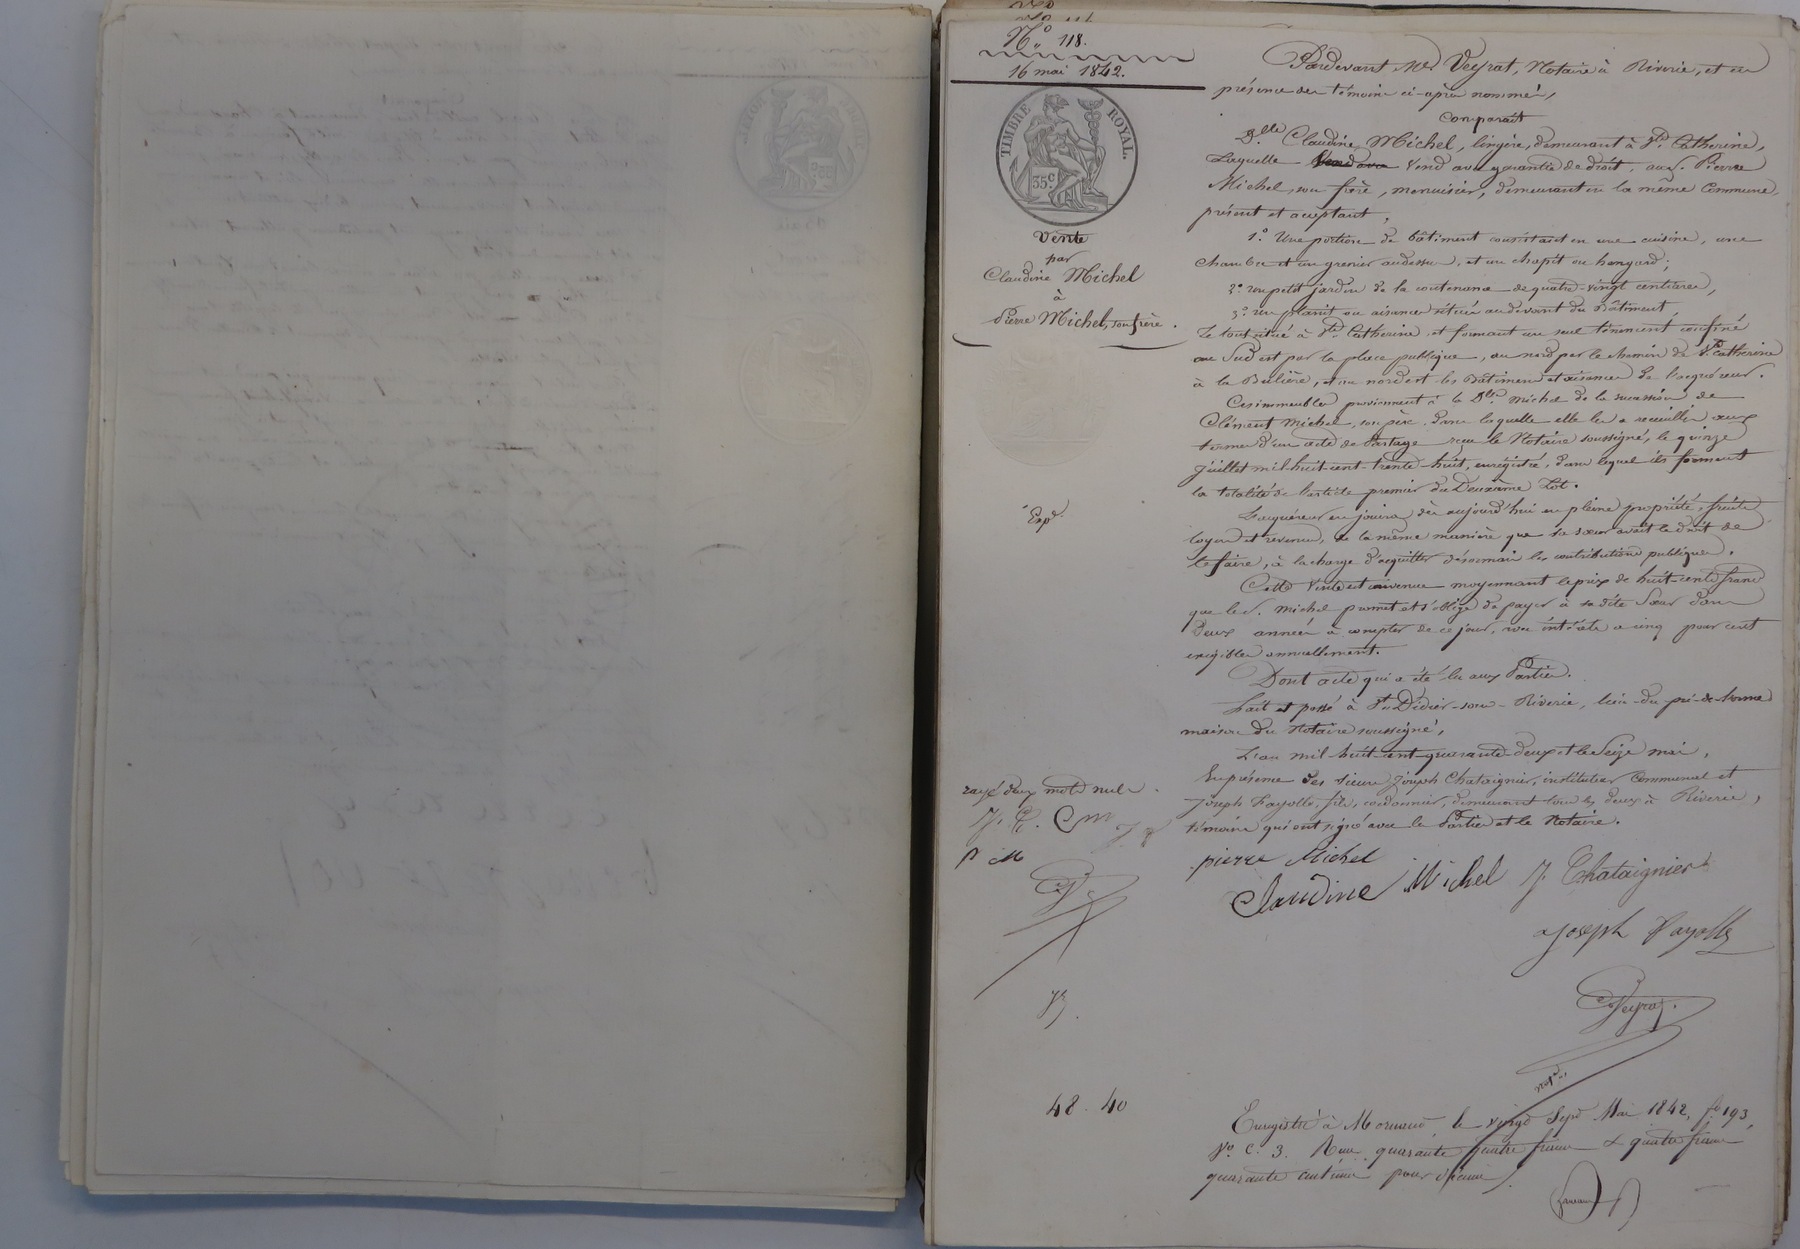 N.º 118.
16 mai 1842.
TIMBRE ROYAL.
35 c.
Vente
par
Claudine Michel
à
Pierre Michel, son frère.
Exp.
Pardevant Me Veyrat, Notaire à Riverie, et en
présence des témoins ci-après nommés,
Comparait
D.lle Claudine Michel, lingère, demeurant à Ste Catherine,
Laquelle vend avec garantie de droit, au S. Pierre
Michel, son frère, menuisier, demeurant en la même Commune,
présent et acceptant,
1.º Une portion de bâtiment consistant en une cuisine, une
chambre et un grenier audessus, et un chapit ou hangard;
2.º un petit jardin de la contenance de quatre-vingt centiares,
3.º un placit ou aisances situées au devant du Bâtiment,
Le tout situé à Ste Catherine et formant un seul ténement confiné
au Sud est par la place publique, au nord par le chemin de Ste Catherine
à la Bulière, et au nord est les Bâtimens et aisances de l'acquéreur.
Ces immeubles proviennent à la Dlle Michel de la succession de
Clément Michel, son père, dans laquelle elle les a recueillis aux
termes d'un acte de Partage reçu le Notaire soussigné, le quinze
Juillet mil-huit-cent-trente-huit, enrégistré, dans lequel ils forment
la totalité de l'article premier du Deuxième Lot.
L'acquéreur en jouira dès aujourd'hui en pleine propriété, fruits
loyers et revenus, de la même manière que sa sœur avait le droit de
le faire, à la charge d'acquitter désormais les contributions publiques.
Cette Vente est convenue moyennant le prix de huit-cents francs
que le S. Michel promet et s'oblige de payer à sa dite Sœur dans
Deux années à compter de ce jour, avec intérêts à cinq pour cent
exigibles annuellement.
Dont acte qui a été lu aux Parties.
Fait et passé à St Didier-sous-Riverie, lieu du pré-de-
maison du Notaire soussigné,
L'an mil-huit-cent-quarante-deux et le Seize mai,
En présence des sieurs Joseph Chataignier, instituteur Communal et
Joseph Fayolle, fils, cordonnier, demeurant tous les deux à Riverie,
témoins qui ont signé avec les Parties et le Notaire.
rayé deux mots nuls.
J. C. Cm J. f
P M
pierre Michel
Claudine Michel J. Chataignier
Joseph Fayolle
Veyrat.
48. 40
Enregistré à Mornant, le vingt Sept Mai 1842, fo 193,
Vo. C. 3. Reçu quarante quatre francs & quatre francs
quarante centimes pour décime.